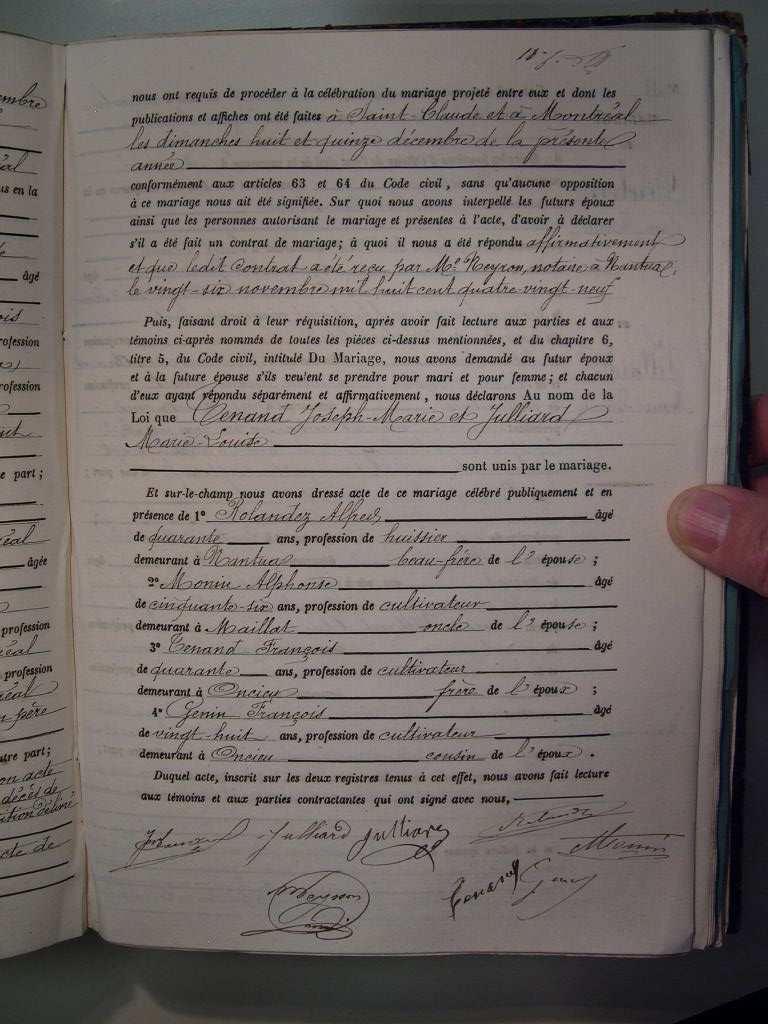 embre
éal
us en la
âgé
ois
rofession
rofession
e part ;
éal
âgée
profession
éal
profession
réal
n père
utre part ;
on acte
décès de
acte de
nous ont requis de procéder à la célébration du mariage projeté entre eux et dont les
publications et affiches ont été faites à Saint-Claude et à Montréal
les dimanches huit et quinze décembre de la présente
année
conformément aux articles 63 et 64 du Code civil, sans qu'aucune opposition
à ce mariage nous ait été signifiée. Sur quoi nous avons interpellé les futurs époux
ainsi que les personnes autorisant le mariage et présentes à l'acte, d'avoir à déclarer
s'il a été fait un contrat de mariage; à quoi il nous a été répondu affirmativement
et que ledit contrat a été reçu par Me Neyron, notaire à Nantua,
le vingt-six novembre mil huit cent quatre-vingt neuf
Puis, faisant droit à leur réquisition, après avoir fait lecture aux parties et aux
témoins ci-après nommés de toutes les pièces ci-dessus mentionnées, et du chapitre 6,
titre 5, du Code civil, intitulé Du Mariage, nous avons demandé au futur époux
et à la future épouse s'ils veulent se prendre pour mari et pour femme; et chacun
d'eux ayant répondu séparément et affirmativement, nous déclarons Au nom de la
Loi que Tenand Joseph-Marie et Julliard
Marie-Louise
sont unis par le mariage.
Et sur-le-champ nous avons dressé acte de ce mariage célébré publiquement et en
présence de 1° Rolandez Alfred âgé
de quarante ans, profession de huissier
demeurant à Nantua beau-frère de l'épouse ;
2° Monin Alphonse âgé
de cinquante-six ans, profession de cultivateur
demeurant à Maillat oncle de l'épouse ;
3° Tenand François âgé
de quarante ans, profession de cultivateur
demeurant à Oncieu frère de l'époux ;
4° Genin François âgé
de vingt-huit ans, profession de cultivateur
demeurant à Oncieu cousin de l'époux .
Duquel acte, inscrit sur les deux registres tenus à cet effet, nous avons fait lecture
aux témoins et aux parties contractantes qui ont signé avec nous,
Julliard Julliard
Monin
Tenand Genin